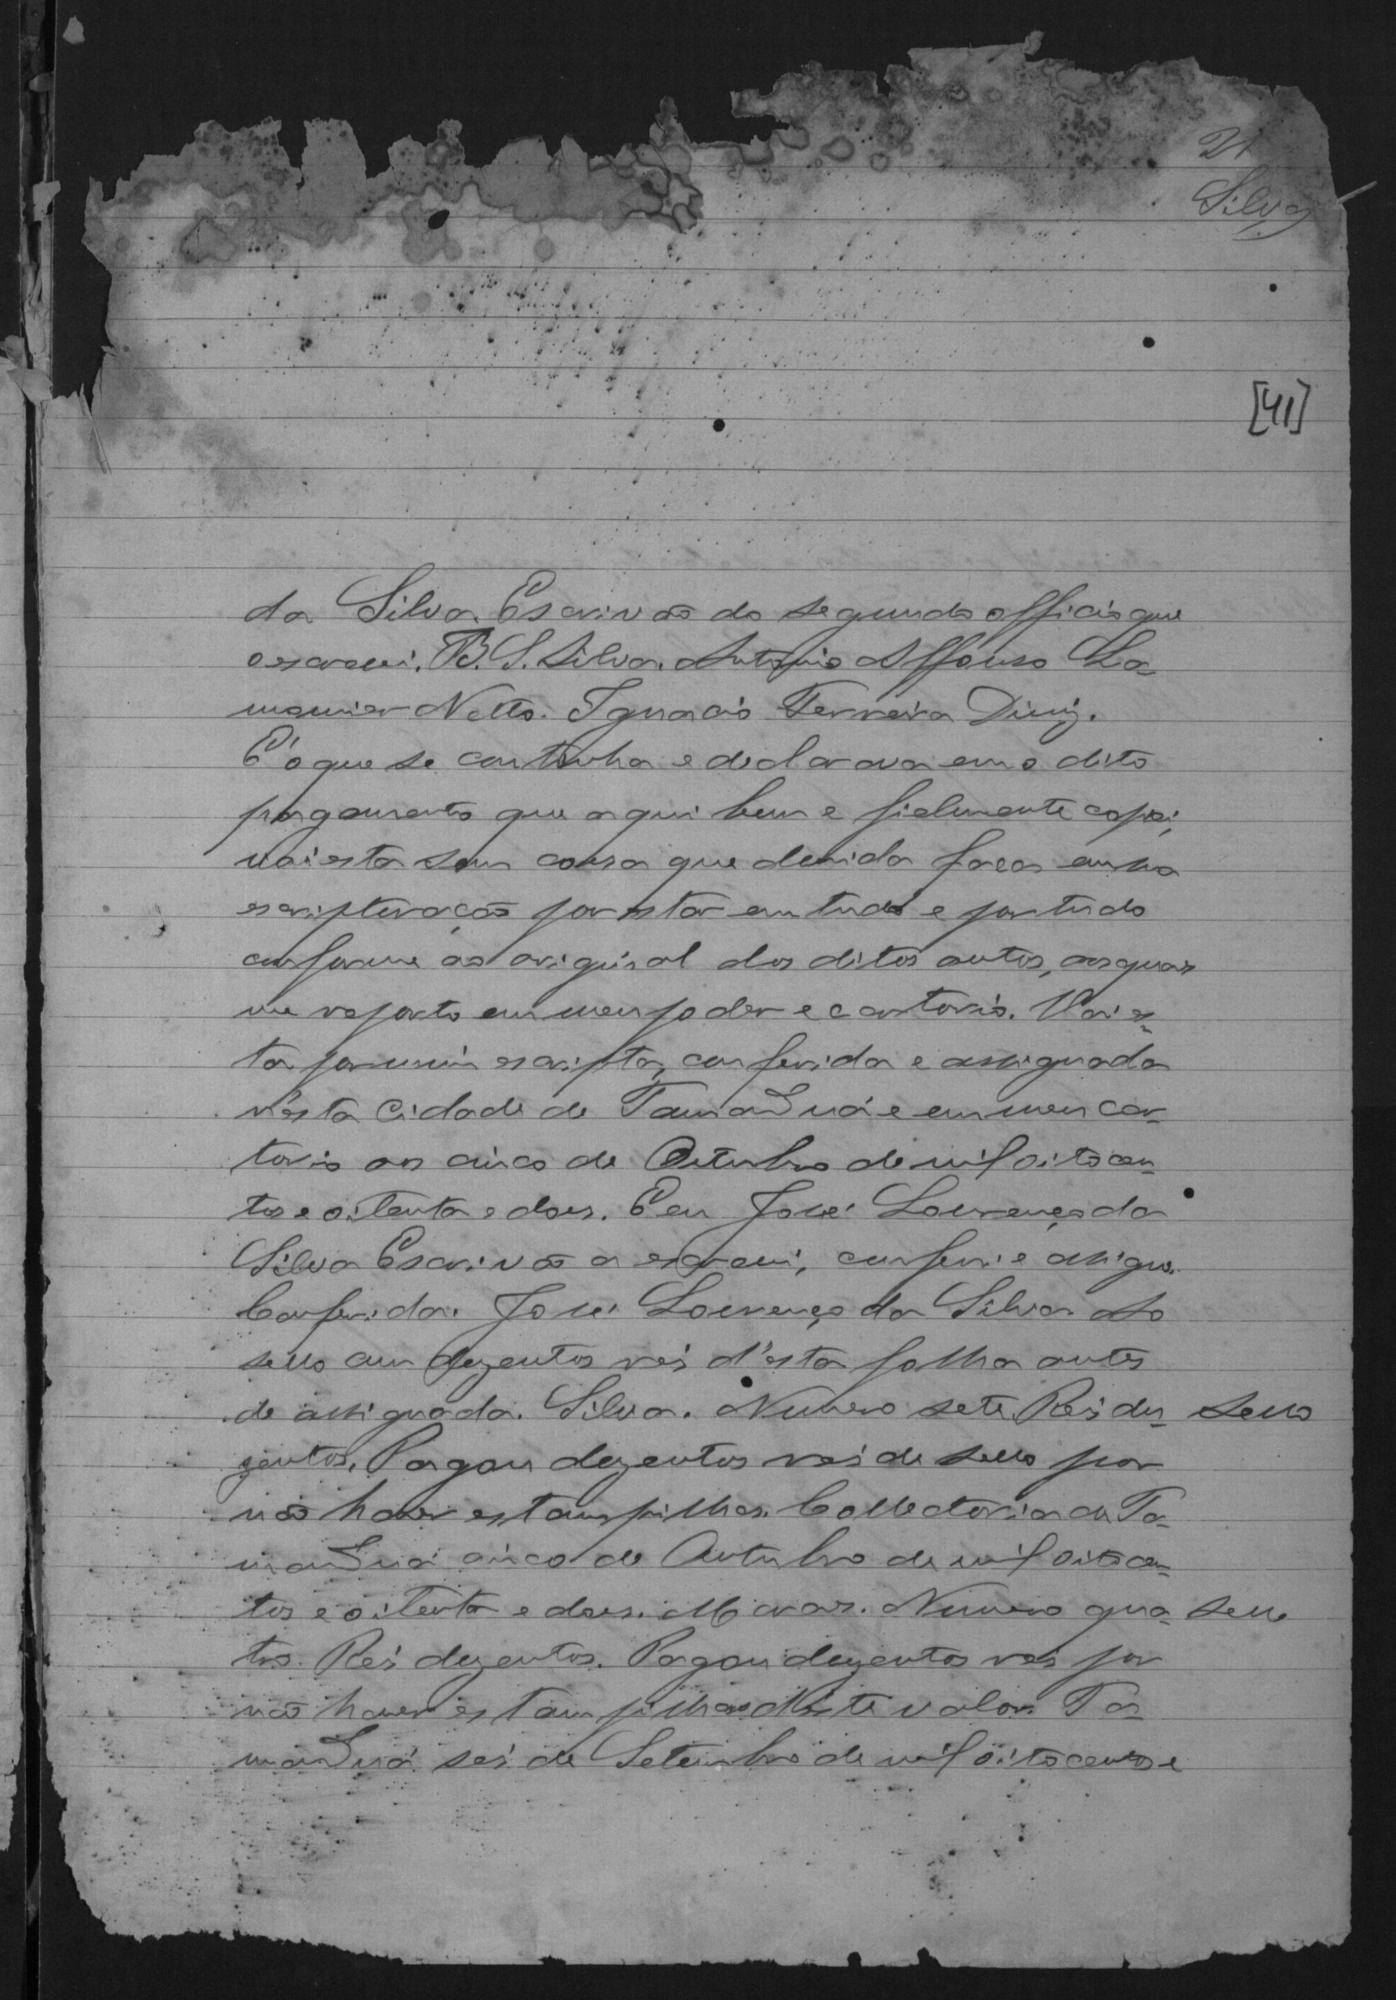 21
Silva
[41]
da Silva. Escrivão do segundo officio que
o escrevi. B. S. Silva. Antonio Affonso La-
mounier Netto. Ignacio Ferreira Diniz.
É o que se continha e declarava em o dito
pagamento que aqui bem e fielmente copiei,
vai esta sem cousa que duvida faça em sua
escripturação por estar em tudo e por tudo
conforme ao original dos ditos autos, aos quaes
me reporto em meu poder e cartorio. Vai es-
ta por mim escripta, conferida e assignada
n'esta Cidade de Tamanduá e em meu car-
torio aos cinco de Outubro de mil oitocen-
tos e oitenta e dous. E eu José Lourenço da
Silva Escrivão a escrevi, conferi e assigno.
Conferida. José Lourenço da Silva. Ao
sello em duzentos reis d'esta folha antes
de assignada. Silva. Numero sete Reis du- Sello
zentos. Pagou duzentos reis de sello por
não haver estampilhas. Collectoria de Ta-
manduá cinco de Outubro de mil oitocen-
tos e oitenta e dous. Moraes. Numero qua- Sello
tro. Reis duzentos. Pagou duzentos reis por
não haver estampilhas d'este valor. Ta-
manduá seis de Setembro de mil oitocentos e